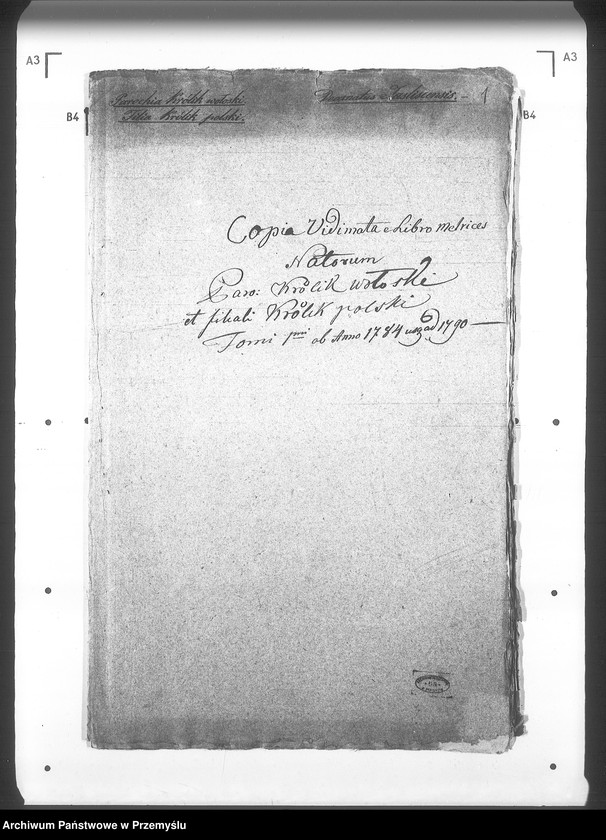 A3
A3
B4
B4
Parochia Królik wołoski. Decanatus – 1
Filia Królik polski.
Copia Vidimata e Libro Metrices
Natorum
Paro: Królik wołoski
et filiali Królik polski
Tomi 1mi ab Anno 1784 usq ad 1790 —
Archiwum Państwowe w Przemyślu